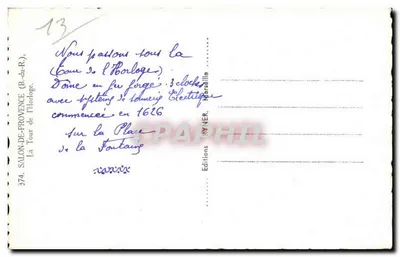 13
374. SALON-DE-PROVENCE (B.-du-R.),
La Tour de l'Horloge.
Nous passons sous la
(Tour de l'Horloge)
Dôme en fer forgé. 3 cloches
avec système de sonnerie Electrique
commencée en 1626
sur la Place
de la Fontaine
xxxxxx
Editions RYNER, Marseille